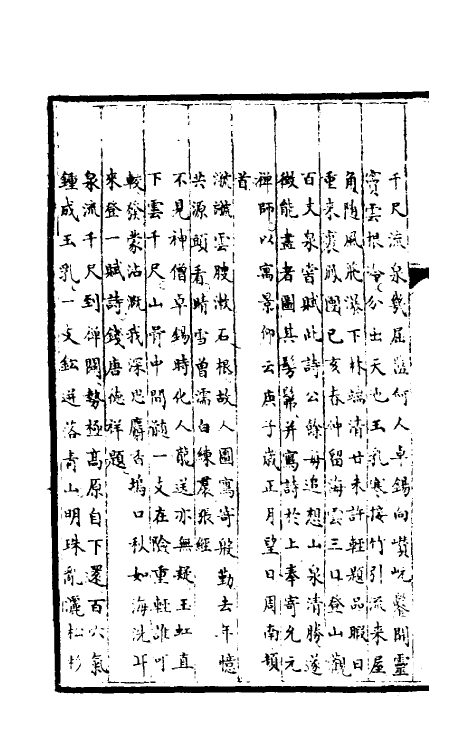 千尺流泉幾屈盤何人卓錫向巑岏鑿開靈
竇雲根冷分出天池玉乳寒接竹引流來屋
角随風飛瀑下林端清甘未許輕題品暇日
重來裹殿團已亥春仲留海雲三日登山觀
百丈泉嘗賦此詩公餘每追想山泉清勝遂
徴能畫者圖其髣髴并寫詩於上奉寄允元
禪師以寓景仰云庚子歲正月望日周南頓
首
雲腰漱石根故人圖寫寄殷勤去年憶
共源頭看晴雪曾濡白練裠張經
不見神僧卓錫時化人能送亦無疑玉虹直
下雲千尺山骨中間髓一支在險重輕誰可
較發蒙沾漑我深思麝香塢口秋如海洗耳
來登一賦詩錢唐德祥題
泉流千尺到禪關勢極髙原自下還百穴氣
鍾成玉乳一文迸落青山明珠亂灑松杉